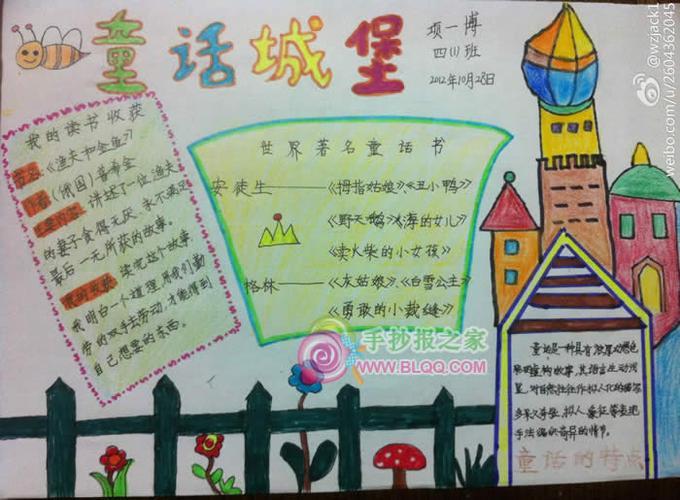 童话城堡
项一博
四(1)班
2012年10月28日
@wzjack1
weibo.com/u/2604362045
我的读书收获
书名:《渔夫和金鱼》
作者:(俄国)普希金
主要内容:讲述了一位渔夫
的妻子贪得无厌,永不满足
最后一无所获的故事。
我的收获:读完这个故事,
我明白一个道理,用我们勤
劳的双手去劳动,才能得到
自己想要的东西。
世界著名童话书
安徒生——《拇指姑娘》、《丑小鸭》
《野天鹅》《海的女儿》
《卖火柴的小女孩》
格林——《灰姑娘》、《白雪公主》
《勇敢的小裁缝》
手抄报之家
WWW.BLQQ.COM
童话是一种具有浓厚幻想色
彩的虚构故事,其语言生动浅
显,对自然往往作拟人化的描写
多采用夸张、拟人、象征等表现
手法编织奇异的情节。
童话的特点